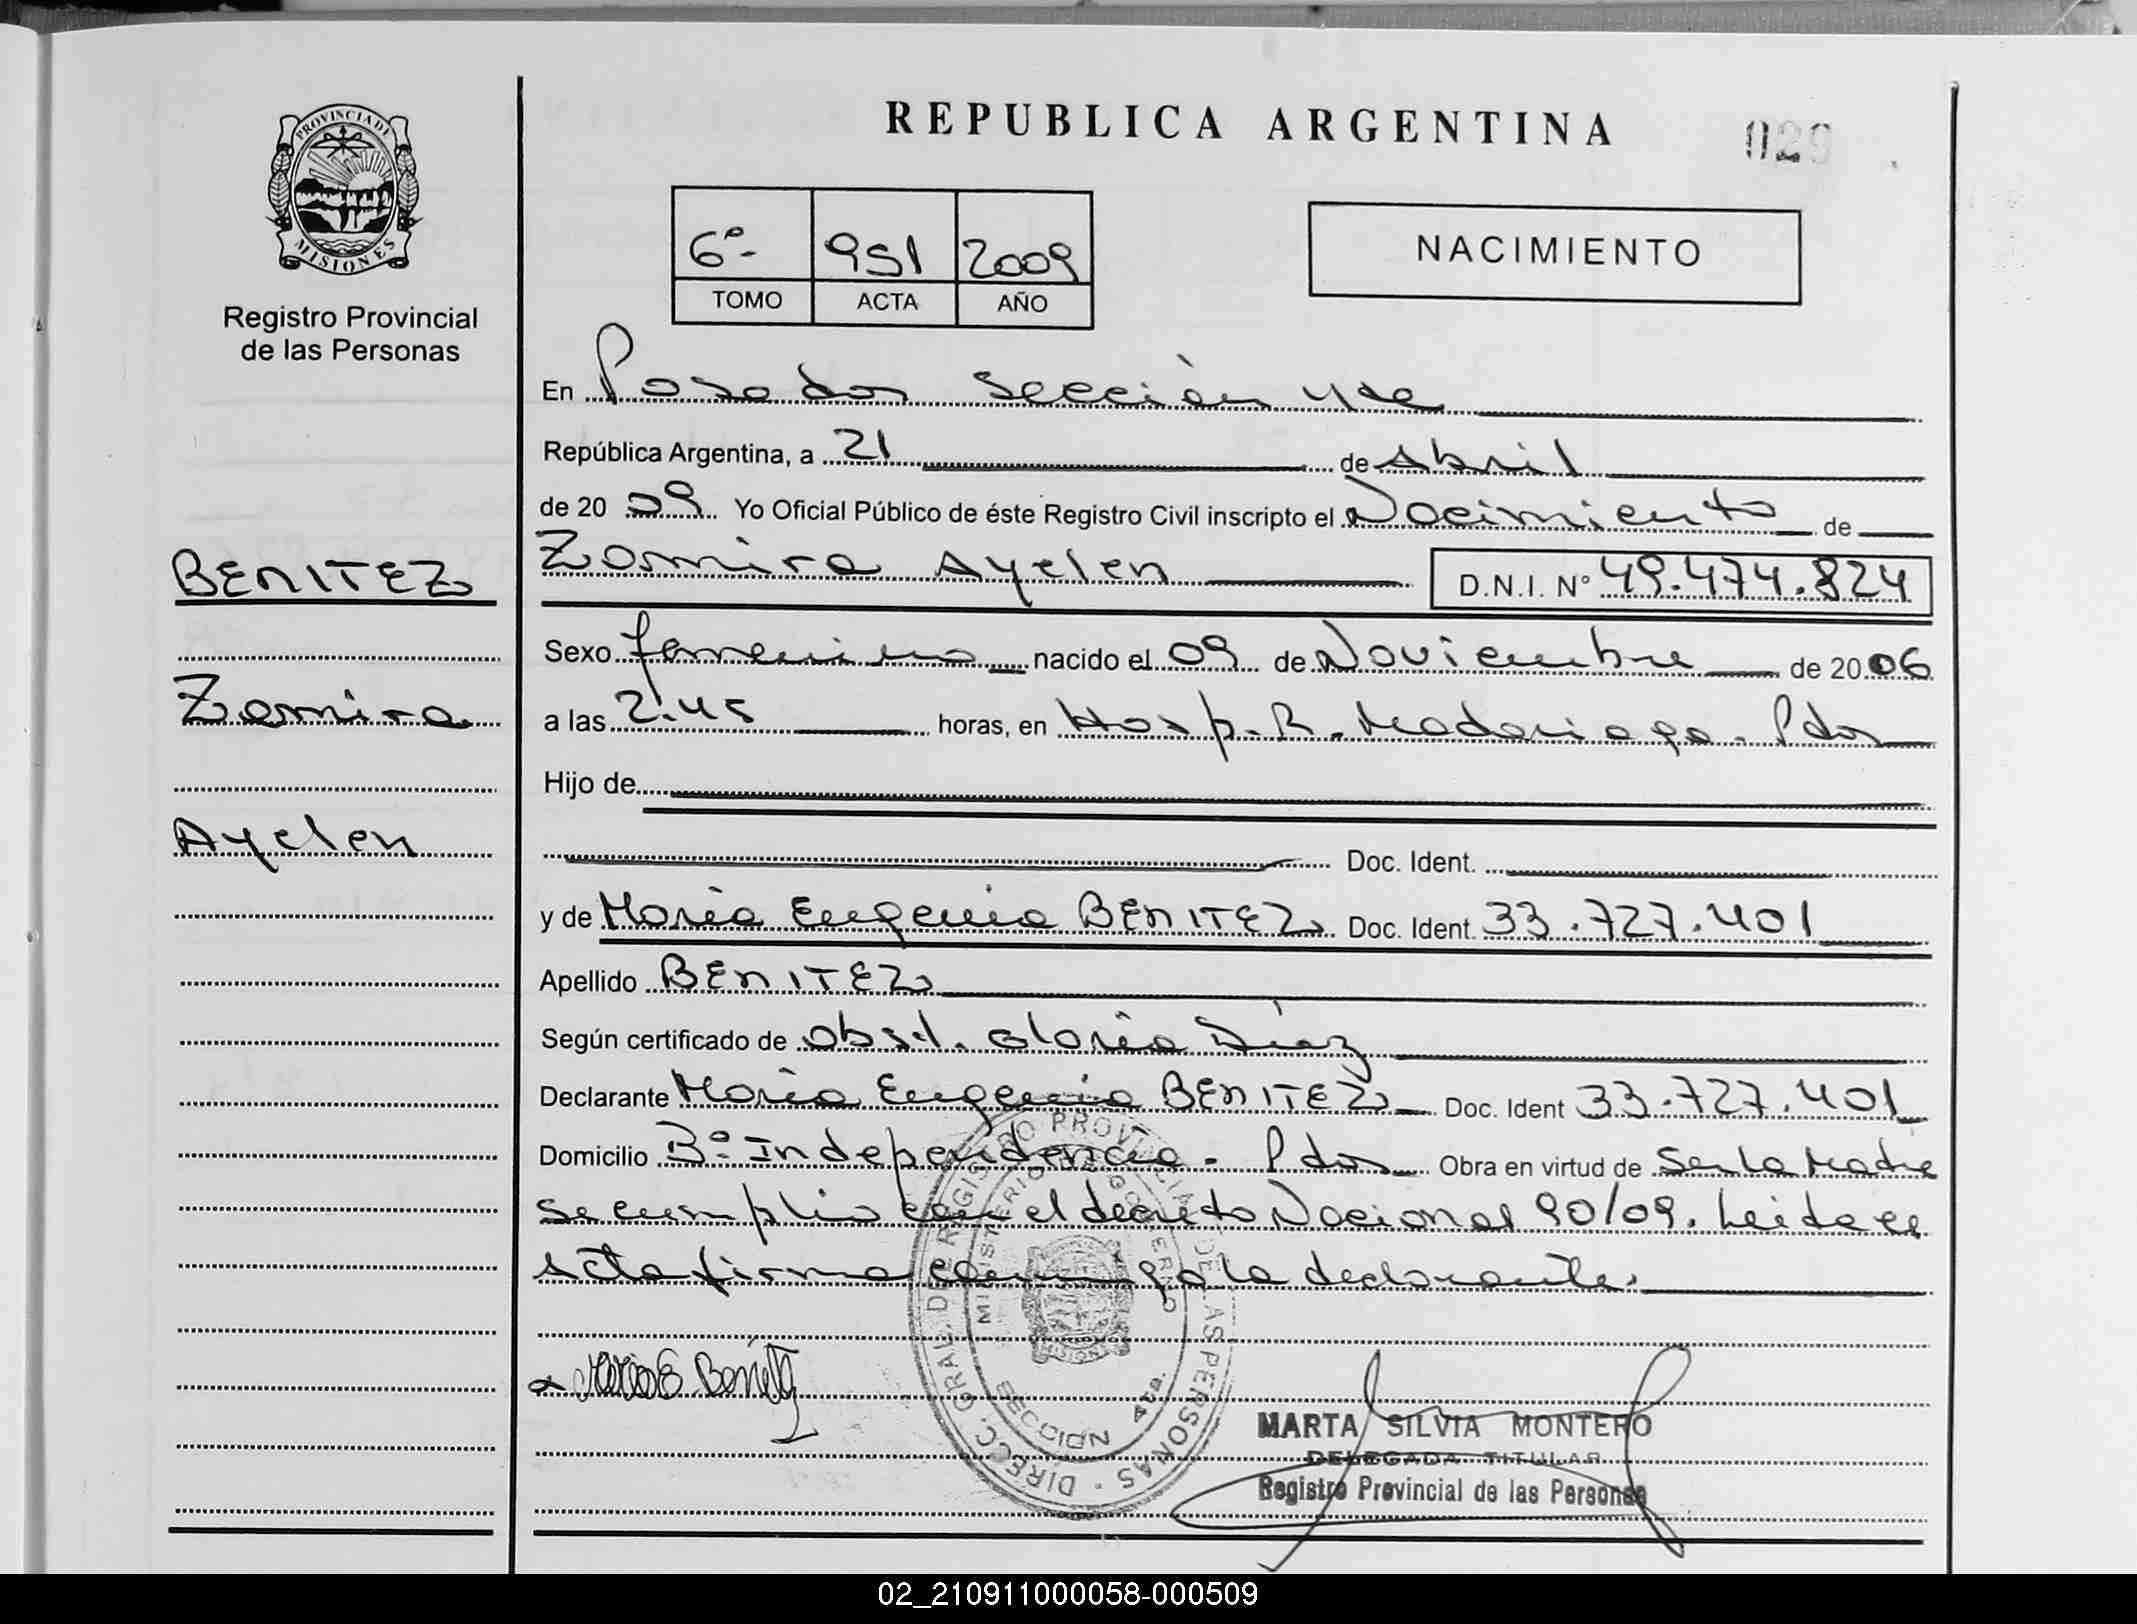 REPUBLICA ARGENTINA
029
PROVINCIA DE
MISIONES
Registro Provincial
de las Personas
6º- 951 2009
TOMO ACTA AÑO
NACIMIENTO
En Posadas Sección 4ta
República Argentina, a 21 de Abril
de 20 09 Yo Oficial Público de éste Registro Civil inscripto el Nacimiento de
BENITEZ
Zamira Ayelen D.N.I. Nº 49.474.824
Sexo femenino nacido el 09 de Noviembre de 2006
Zamira
a las 2:45 horas, en Hosp. R. Madariaga. Pdas
Hijo de
Ayelen
Doc. Ident.
y de María Eugenia BENITEZ Doc. Ident. 33.727.401
Apellido BENITEZ
Según certificado de Obst. Gloria Díaz
Declarante María Eugenia BENITEZ Doc. Ident 33.727.401
Domicilio Bº Independencia. Pdas Obra en virtud de Ser la Madre
se cumplio con el decreto Nacional 90/09. Leida el
Acta firma conmigo la declarante.
Maria E Benitez
DIRECC. GRAL. DEL REGISTRO PROVINCIAL DE LAS PERSONAS
MINISTERIO DE GOBIERNO
MISIONES
SECCION 4ta.
MARTA SILVIA MONTERO
DELEGADA TITULAR
Registro Provincial de las Personas
02_210911000058-000509